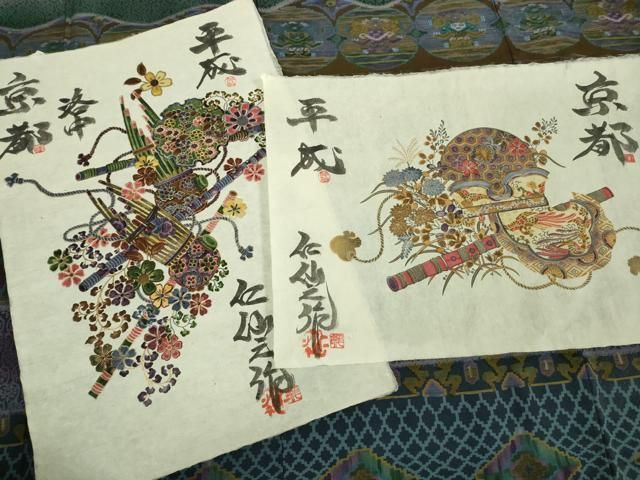 平成
京都
洛中
仁仙之作
平成
京都
仁仙之作